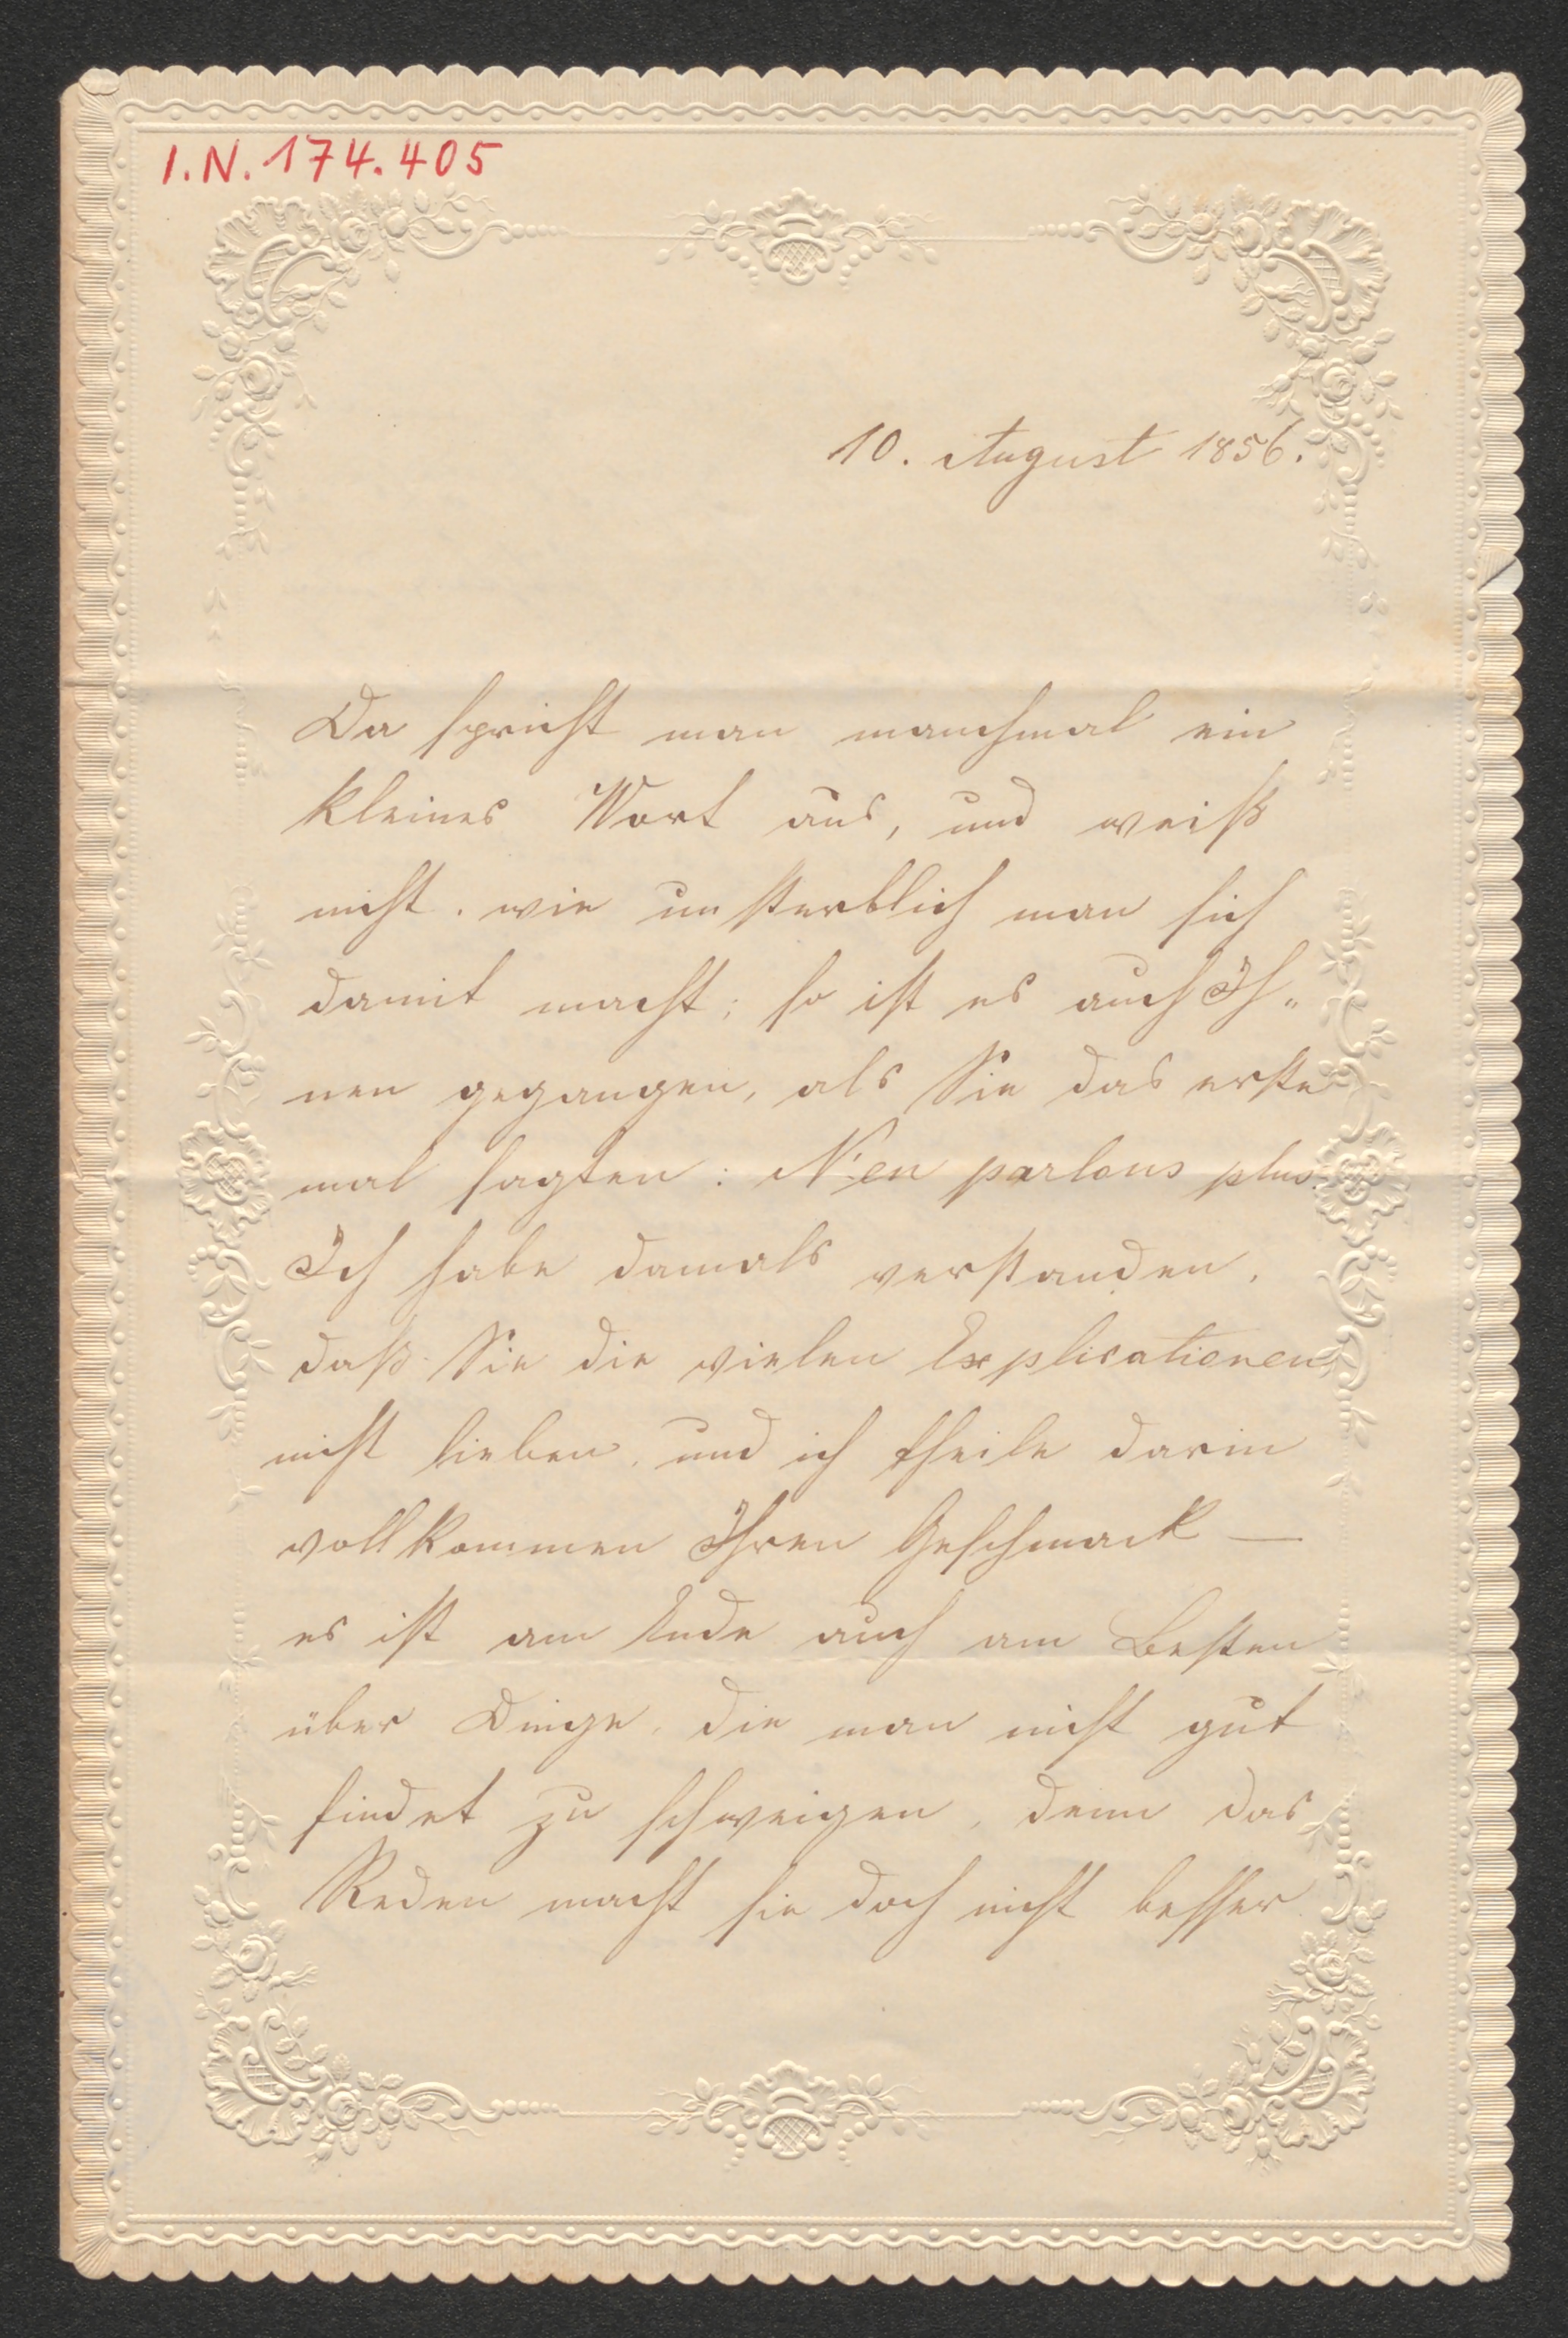 I.N. 174.405
10. August 1856.
Da spricht man manchmal ein
kleines Wort aus, und weiß
nicht, wie unsterblich man sich
damit macht; so ist es auch Ih„
nen gegangen, als Sie das erste
mal sagten: N'en parlons plus.
Ich habe damals verstanden,
daß Sie die vielen Explicationen
nicht lieben, und ich theile darin
vollkommen Ihren Geschmack —
es ist am Ende auch am Besten
über Dinge, die man nicht gut
findet zu schweigen, denn das
Reden macht sie doch nicht besser.